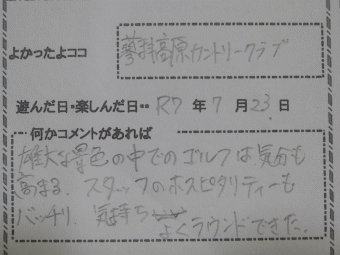 よかったよココ 蓼科高原カントリークラブ
遊んだ日・楽しんだ日・・ R7 年 7 月 23 日
何かコメントがあれば
雄大な景色の中でのゴルフは気分も
高まる。スタッフのホスピタリティーも
バッチリ。気持ちよくラウンドできた。